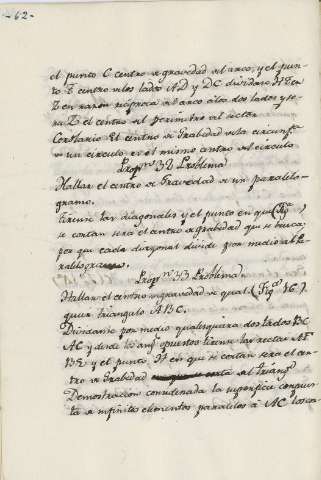 -62-
el punto C centro de gravedad del arco, y el pun-
to Z centro de los lados AD y DC dividase
Z en razon reciproca del arco a los dos lados y se-
ra Z el centro del perimetro del sector
Corolario El centro de Grabedad de la circunf.ª
de un circulo es el mismo centro del circulo
Prop.ⁿ 32 Problema
Hallar el centro de Gravedad de un paralelo-
gramo.
Tirense las diagonales y el punto en que (Fig.ª
se cortan será el centro de grabedad que se busca
por que cada diagonal divide por medio al Pa-
ralelogramo
Prop.ⁿ 33 Problema
Hallar el centro de gravedad de qual (Fig.ª 56).
quier triangulo ABC.
Dividanse por medio qualesquiera dos lados BC
AC y desde los ang.ˢ opuestos tirense las rectas AF
BE y el punto H en que se cortan será el cen-
tro de Grabedad del triang.º
Demostracion considerada la superficie compues-
ta de infinitos elementos paralelos à AC